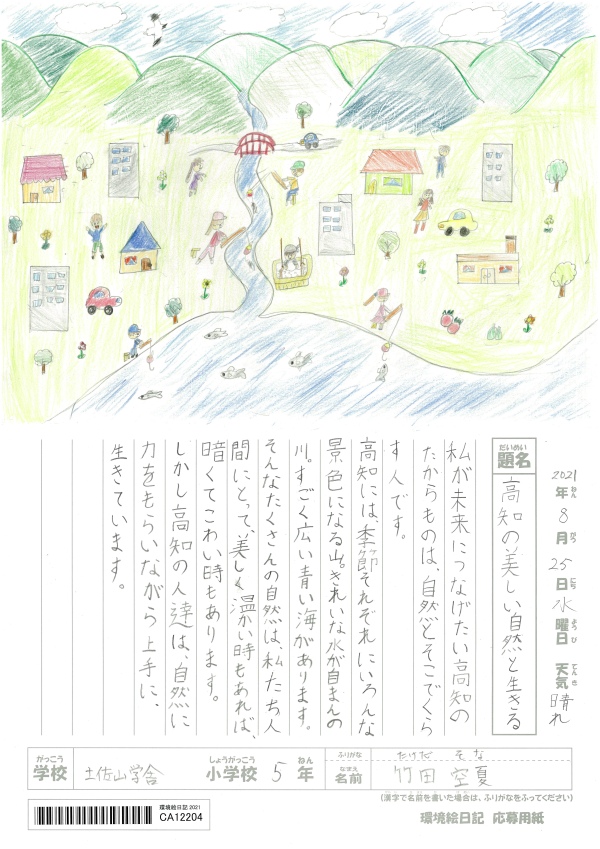 2021年ねん 8月がつ 25日にち 水曜日ようび 天気てんき 晴れ
題名だいめい 高知の美しい自然と生きる
私が未来につなげたい高知の
たからものは、自然とそこでくら
す人です。
高知には、季節それぞれにいろんな
景色になる山。きれいな水が自まんの
川。すごく広い青い海があります。
そんなたくさんの自然は、私たち人
間にとって、美しく温かい時もあれば、
暗くてこわい時もあります。
しかし高知の人達は、自然に
力をもらいながら上手に、
生きています。
がっこう しょうがっこう ねん
学校 土佐山学舎 小学校 5 年
ふりがな たけだ そな
なまえ
名前 竹田 空夏
(漢字で名前を書いた場合は、ふりがなをふってください)
環境絵日記 2021
CA12204
環境絵日記 応募用紙